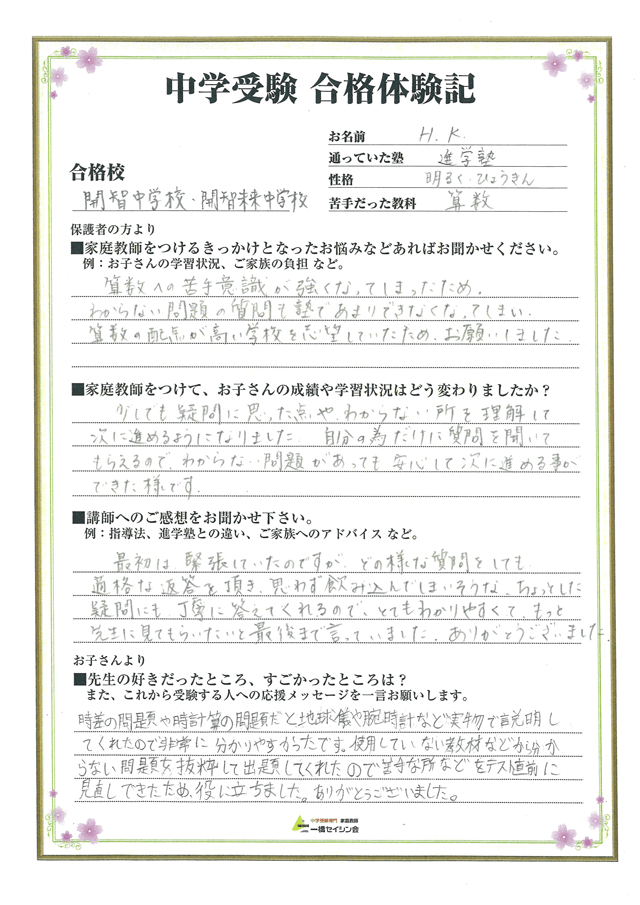 中学受験 合格体験記
お名前 H.K.
通っていた塾 進学塾
性格 明るく・ひょうきん
苦手だった教科 算数
合格校
開智中学校・開智未来中学校
保護者の方より
■家庭教師をつけるきっかけとなったお悩みなどあればお聞かせください。
例：お子さんの学習状況、ご家族の負担 など。
算数への苦手意識が強くなってしまったため。
わからない問題の質問も塾であまりできなくなってしまい、
算数の配点が高い学校を志望していたため、お願いしました。
■家庭教師をつけて、お子さんの成績や学習状況はどう変わりましたか？
少しでも疑問に思った点や、わからない所を理解して
次に進めるようになりました。自分の為だけに質問を聞いて
もらえるので、わからない問題があっても安心して次に進める事が
できた様です。
■講師へのご感想をお聞かせ下さい。
例：指導法、進学塾との違い、ご家族へのアドバイス など。
最初は緊張していたのですが、どの様な質問をしても
適格な返答を頂き、思わず飲み込んでしまいそうな、ちょっとした
疑問にも、丁寧に答えてくれるので、とてもわかりやすくて、もっと
先生に見てもらいたいと最後まで言っていました。ありがとうございました。
お子さんより
■先生の好きだったところ、すごかったところは？
また、これから受験する人への応援メッセージを一言お願いします。
時差の問題や時計算の問題だと地球儀や腕時計など実物で説明し
てくれたので非常に分かりやすかったです。使用していない教材などから分か
らない問題を抜粋して出題してくれたので苦手な所などをテスト直前に
見直しできたため、役に立ちました。ありがとうございました。
中学受験専門 家庭教師
一橋セイシン会